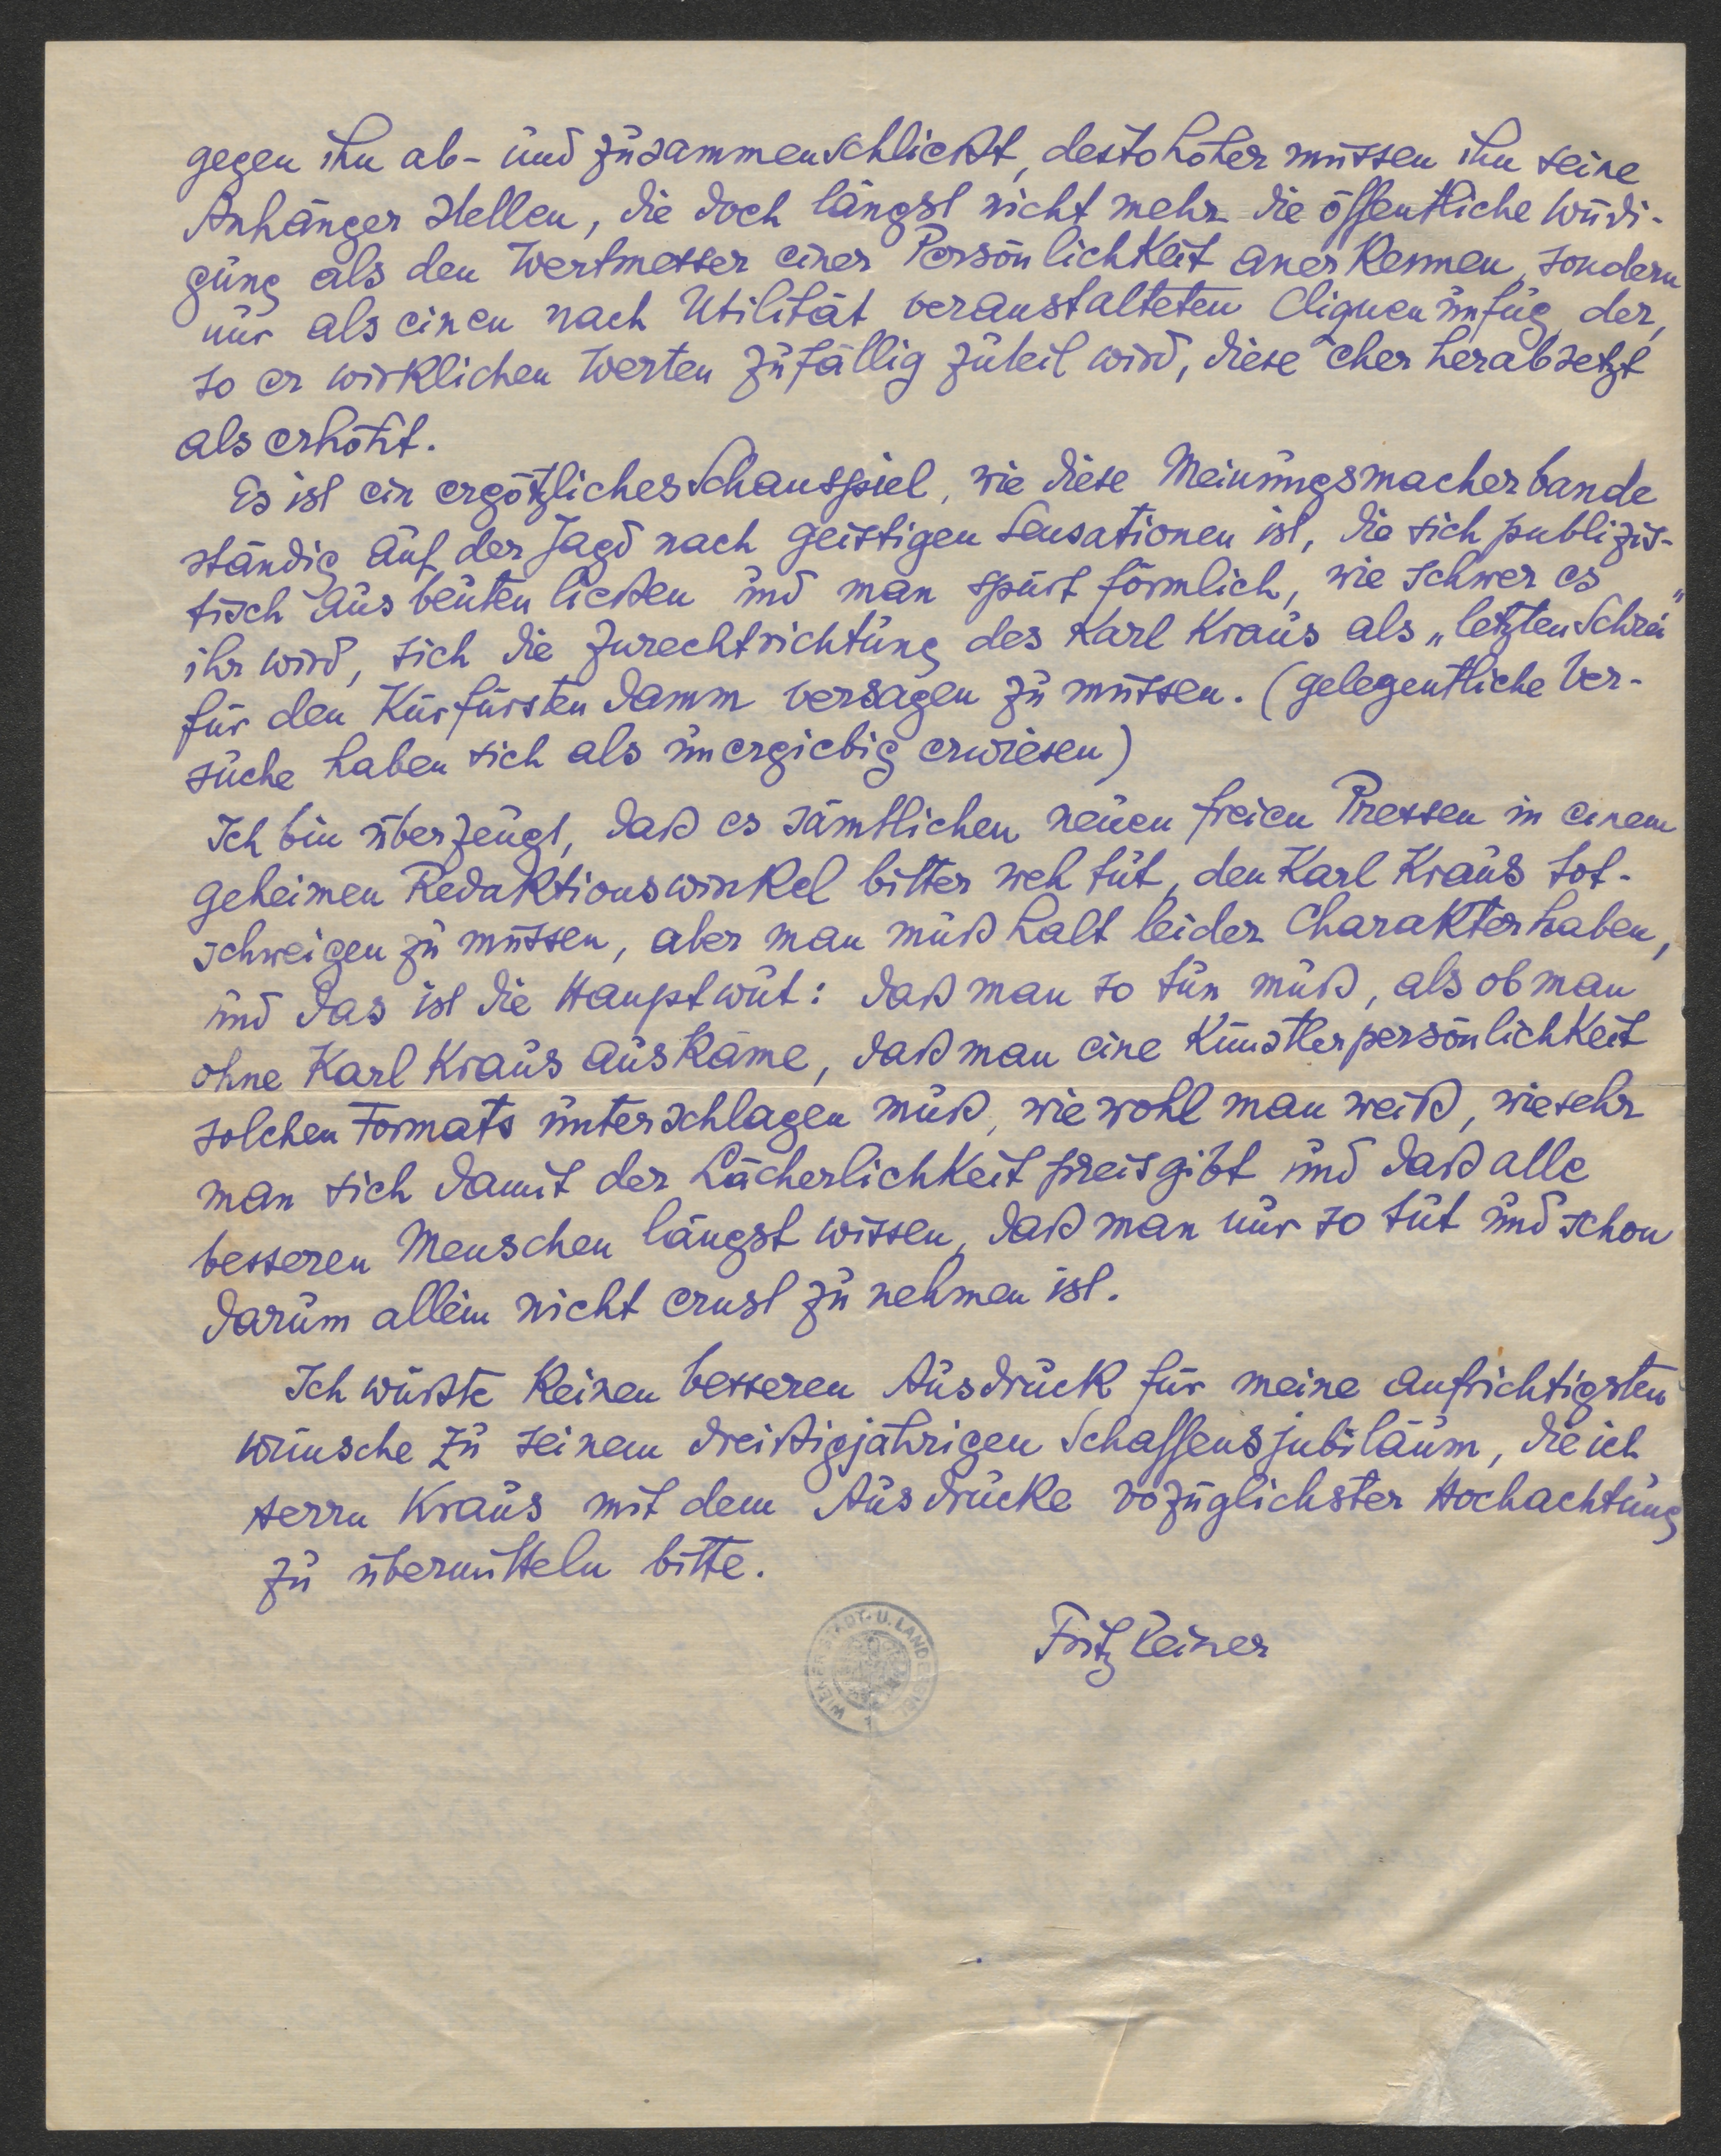 gegen ihn ab- und zusammenschließt, desto höher müssen ihn seine
Anhänger stellen, die doch längst nicht mehr die öffentliche Würdi-
gung als den Wertmesser einer Persönlichkeit anerkennen, sondern
nur als einen nach Utilität veranstalteten Cliquenunfug, der,
so er wirklichen Werten zufällig zuteil wird, diese eher herabsetzt
als erhöht.
Es ist ein ergötzliches Schauspiel, wie diese Meinungsmacherbande
ständig auf der Jagd nach geistigen Sensationen ist, die sich publizis-
tisch ausbeuten ließen und man spürt förmlich, wie schwer es
ihr wird, sich die Zurechtrichtung des Karl Kraus als „letzten Schrei"
für den Kurfürstendamm versagen zu müssen. (gelegentliche Ver-
suche haben sich als unergiebig erwiesen)
Ich bin überzeugt, daß es sämtlichen neuen freien Pressen in einem
geheimen Redaktionswinkel bitter weh tut, den Karl Kraus tot-
schweigen zu müssen, aber man muß halt leider Charakter haben,
und das ist die Hauptwut: daß man so tun muß, als ob man
ohne Karl Kraus auskäme, daß man eine Künstlerpersönlichkeit
solchen Formats unterschlagen muß, wiewohl man weiß, wie sehr
man sich damit der Lächerlichkeit preisgibt und daß alle
besseren Menschen längst wissen, daß man nur so tut und schon
darum allein nicht ernst zu nehmen ist.
Ich wüßte keinen besseren Ausdruck für meine aufrichtigsten
Wünsche zu seinem dreißigjährigen Schaffensjubiläum, die ich
Herrn Kraus mit dem Ausdrucke vozüglichster Hochachtung
zu übermitteln bitte.
Fritz Reiner
WIENER STADT- U. LANDESBIBL.